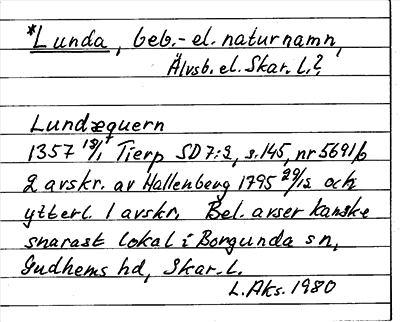 *Lunda, beb.- el. naturnamn,
Älvsb. el. Skar. L.?
Lundæquern
1357 18/1 Tierp SD 7:2, s.145, nr 5691/b
2 avskr. av Hallenberg 1795 29/12 och
ytterl. 1 avskr. Bel. avser kanske
snarast lokal i Borgunda sn,
Gudhems hd, Skar. L.
L. Aks. 1980